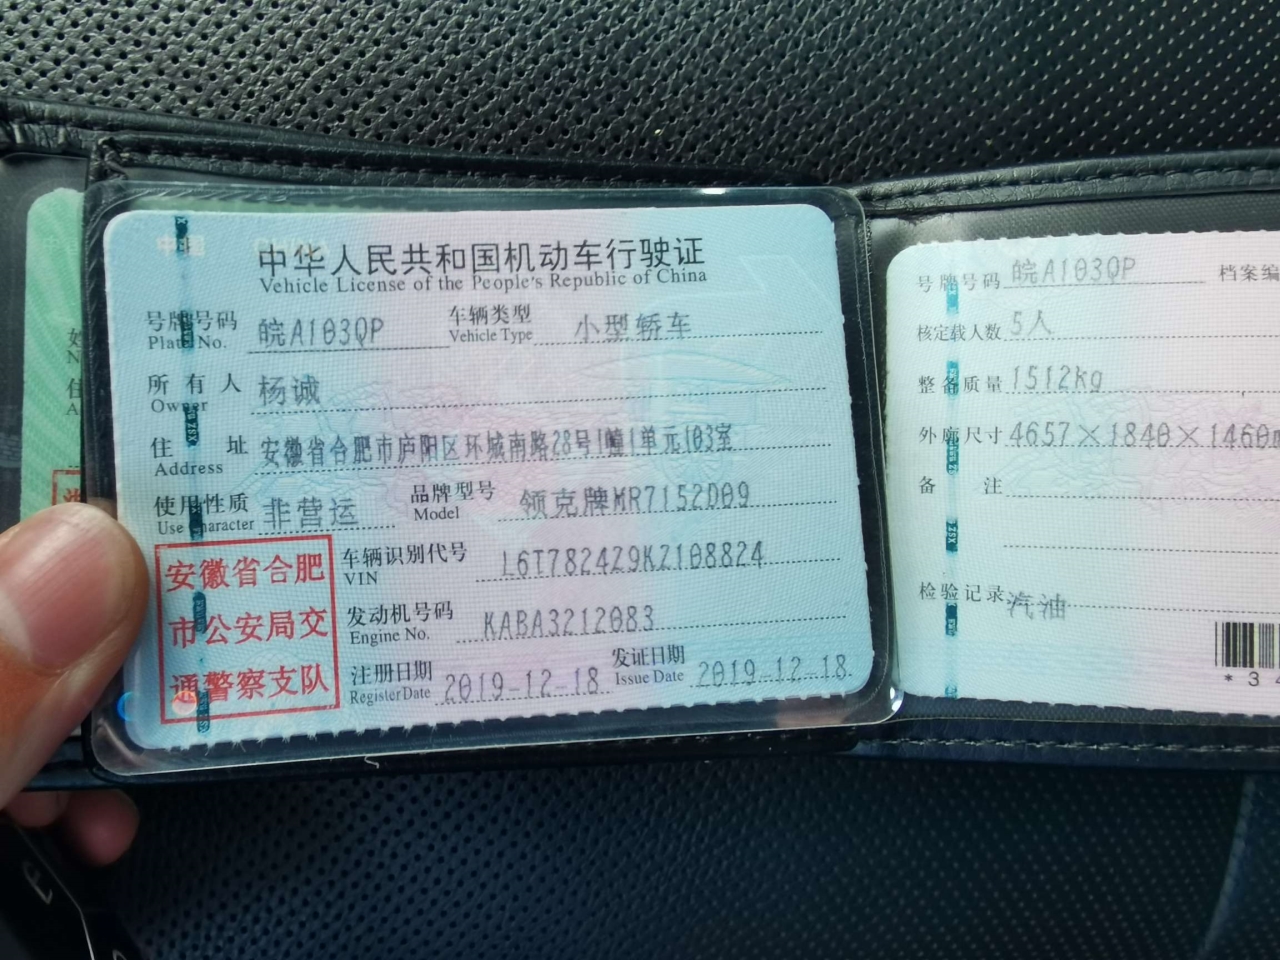 中华人民共和国机动车行驶证
Vehicle License of the People's Republic of China
号牌号码 皖A103QP 车辆类型 小型轿车
Plate No. Vehicle Type
所有人 杨诚
Owner
住址 安徽省合肥市庐阳区环城南路28号1幢1单元103室
Address
使用性质 非营运 品牌型号 领克牌MR7152D09
Use Character Model
安徽省合肥
市公安局交
通警察支队
车辆识别代号 L6T7824Z9KZ108824
VIN
发动机号码 KABA3212083
Engine No.
注册日期 2019-12-18 发证日期 2019-12-18
Register Date Issue Date
号牌号码 皖A103QP 档案编
核定载人数 5人
整备质量 1512kg
外廓尺寸 4657×1840×1460m
备注
检验记录 汽油
*34